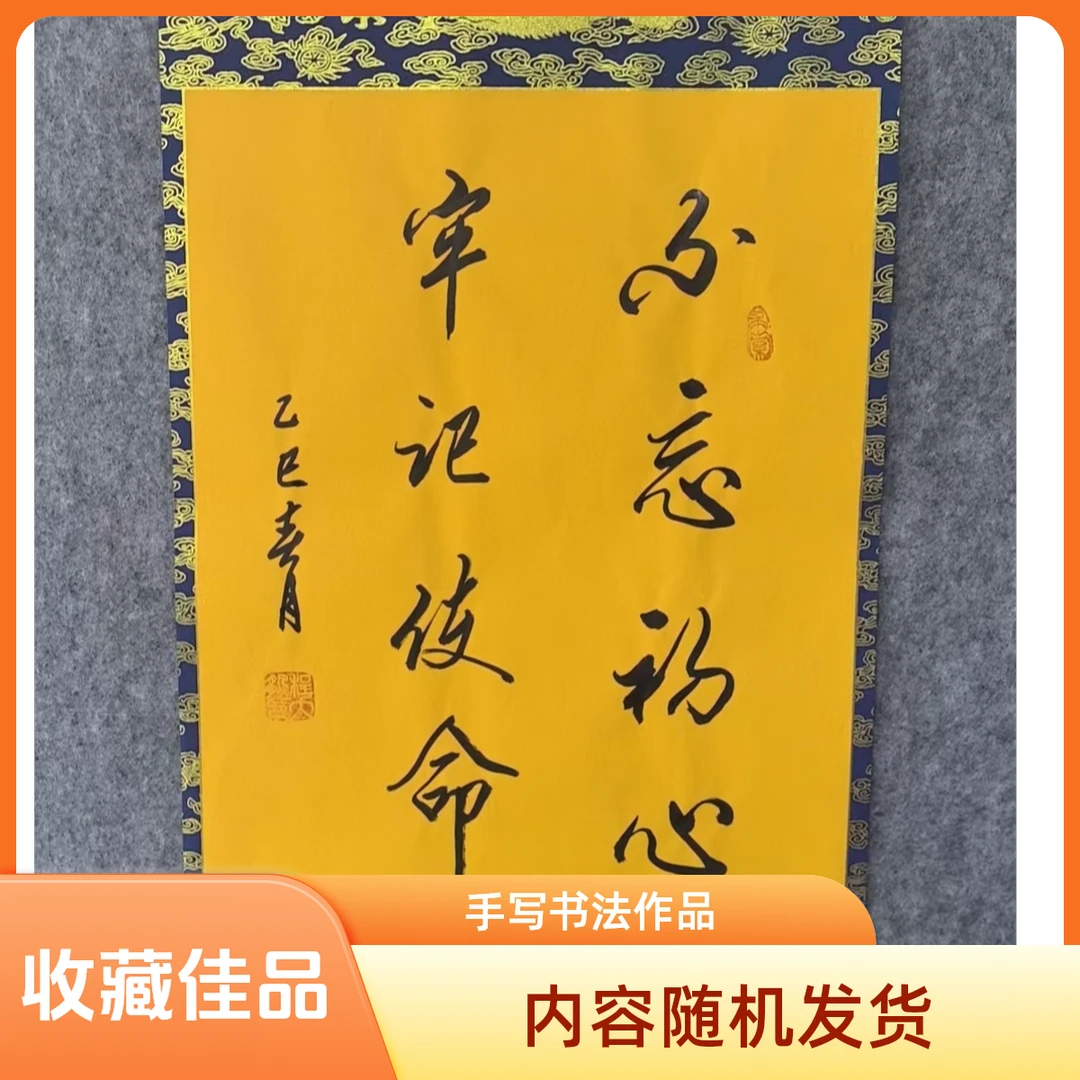 不忘初心
牢记使命
乙巳春月
手写书法作品
收藏佳品
内容随机发货